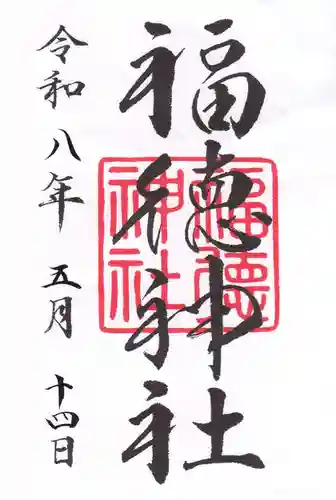 福徳神社
令和八年 五月 十四日
福徳
神社